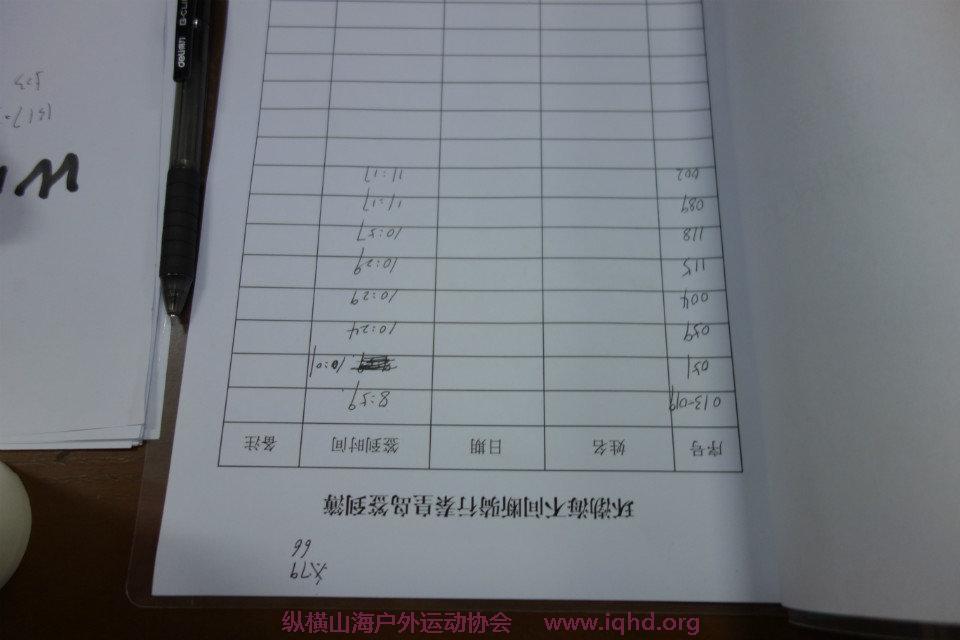 环渤海不间断骑行秦皇岛签到簿
序号 姓名 日期 签到时间 备注
013-019 8:59
051 10:01
059 10:24
004 10:29
115 10:29
118 10:57
089 11:17
002 11:17
deli得力
纵横山海户外运动协会 www.iqhd.org